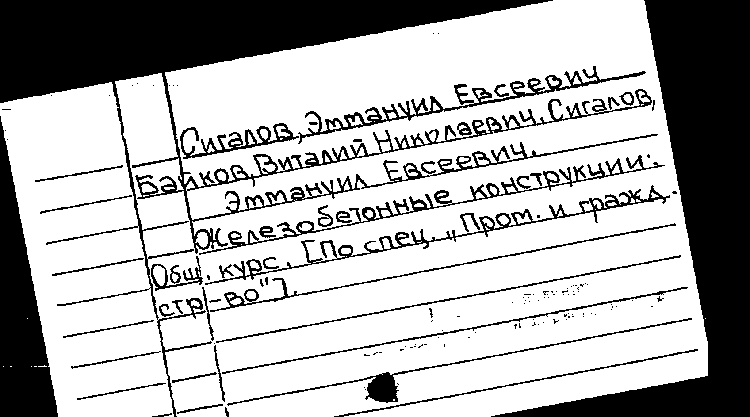 Сигалов, Эммануил Евсеевич
Байков, Виталий Николаевич. Сигалов,
Эммануил Евсеевич.
Железобетонные конструкции:
Общ. курс. [По спец. „Пром. и гражд.
стр-во"].